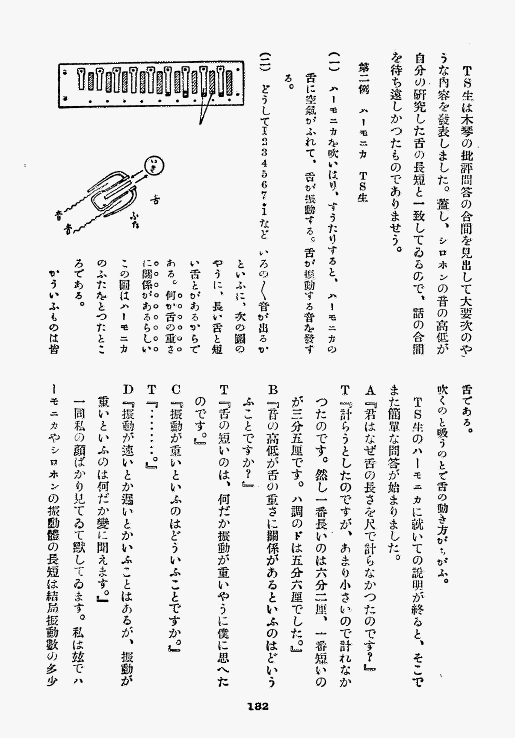 TS生は木琴の批評問答の合間を見出して大要次のや
うな内容を發表しました。蓋し、シロホンの音の高低が
自分の研究した舌の長短と一致してゐるので、話の合間
を待ち遠しかつたものでありませう。
第二例 ハーモニカ TS生
(一) ハーモニカを吹いたり、すうたりすると、ハーモニカの
舌に空氣がふれて、舌が振動する。舌が振動する音を發す
る。
(二) どうして1 2 3 4 5 6 7・iなど いろ〳〵の音が出るか
といふに、次の圖の
やうに、長い舌と短
い舌とがあるからで
ある。何か舌の重さ
に關係があるらしい
この圖はハーモニカ
のふたをとつたとこ
ろである。
かういふものは皆
いき
舌
ふた
音
音
舌である。
吹くのと吸うのとで舌の動き方がちがふ。
TS生のハーモニカに就いての說明が終ると、そこで
また簡單な問答が始まりました。
A『君はなぜ舌の長さを尺で計らなかつたのです?』
T『計らうとしたのですが、あまり小さいので計れなか
つたのです。然し一番長いのは六分二厘、一番短いの
が三分五厘です。ハ調のドは五分六厘でした。』
B『音の高低が舌の重さに關係があるといふのはどうい
ふことですか?』
T『舌の短いのは、何だか振動が重いやうに僕に思へた
のです。』
C『振動が重いといふのはどういふことですか。』
T『・・・・・・。』
D『振動が速いとか遲いとかいふことはあるが、振動が
重いといふのは何だか變に聞えます。』
一同私の顏ばかり見てゐて默してゐます。私は玆でハ
ーモニカやシロホンの振動體の長短は結局振動數の多少
182